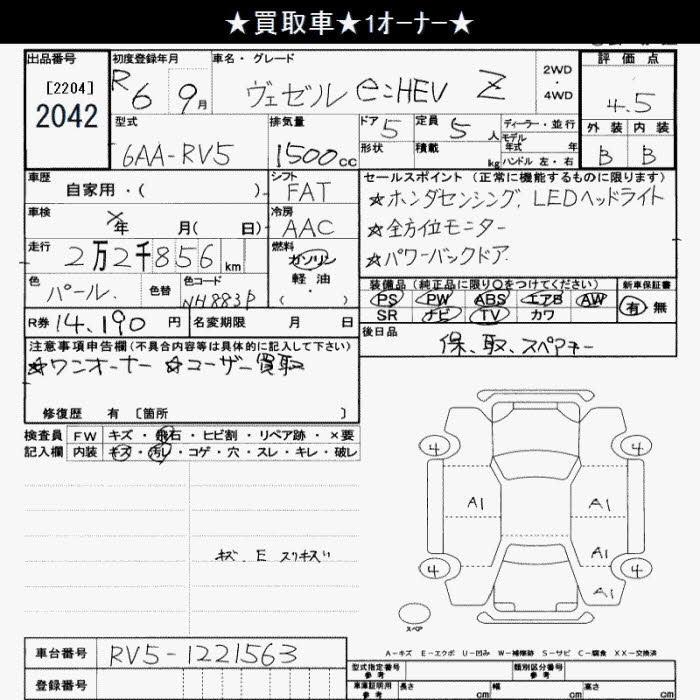 ★買取車★1オーナー★
出品番号
[2204]
2042
初度登録年月
R6 9月
車名・グレード
ヴェゼル e:HEV Z
2WD
・
4WD
評価点
4.5
外装 内装
B B
型式
6AA-RV5
排気量
1500cc
ドア 5
定員 5人
形状
積載 kg
ディーラー・並行
モデル年式 年式
ハンドル 左・右
車歴
自家用・( )
シフト
FAT
車検
×年 月( 日)
冷房
AAC
走行
2万2千856km
燃料
ガソリン
軽油
( ・ )
色
パール.
色替
色コード
NH883P
R券 14,190円
名変期限 月 日
セールスポイント(正常に機能するものに限ります)
★ホンダセンシング, LEDヘッドライト
★全方位モニター
★パワーバックドア.
装備品(純正品に限り○をつけてください)
PS PW ABS エアB AW
SR ナビ TV カワ
新車保証書
有 無
後日品
保、取、スペアキー
注意事項申告欄(不具合内容等は具体的に記入して下さい)
★ワンオーナー ★ユーザー買取
修復歴 有 [箇所 ]
検査員
記入欄
FW キズ・飛石・ヒビ割・リペア跡・×要
内装 キズ・汚レ・コゲ・穴・スレ・キレ・破レ
キズ、E スリキズい
4 4
A1 A1
A1
4 4
A1
スペア
A-キズ E-エクボ U-凹み W-補修跡 S-サビ C-腐食 XX-交換済
車台番号 RV5-1221563
登録番号
型式指定番号
参考
類別区分番号
参考
車庫証明用
参考
長さ cm 幅 cm 高さ cm